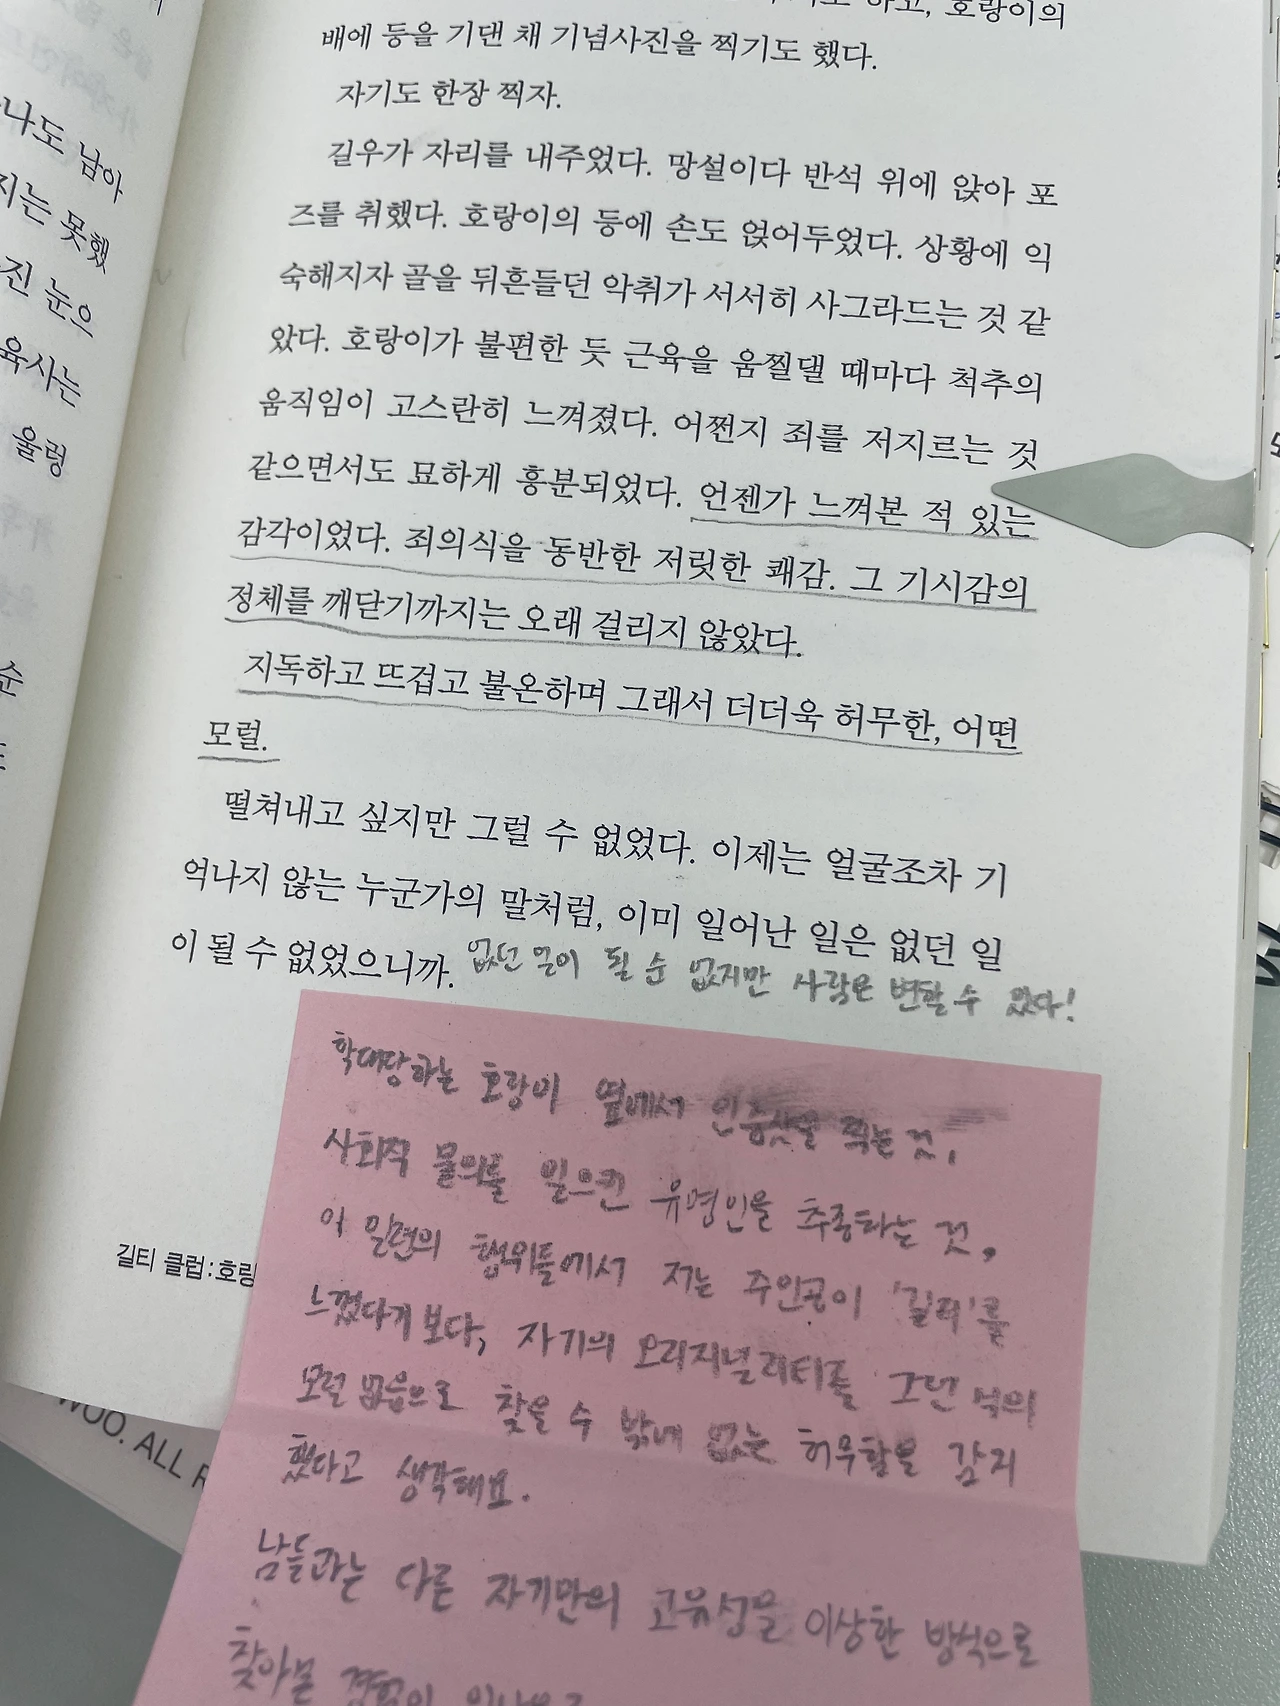 나도 남아
지는 못했
진 눈으
육사는
울렁
순
하고, 호랑이의
배에 등을 기댄 채 기념사진을 찍기도 했다.
자기도 한장 찍자.
길우가 자리를 내주었다. 망설이다 반석 위에 앉아 포
즈를 취했다. 호랑이의 등에 손도 얹어두었다. 상황에 익
숙해지자 골을 뒤흔들던 악취가 서서히 사그라드는 것 같
았다. 호랑이가 불편한 듯 근육을 움찔댈 때마다 척추의
움직임이 고스란히 느껴졌다. 어쩐지 죄를 저지르는 것
같으면서도 묘하게 흥분되었다. 언젠가 느껴본 적 있는
감각이었다. 죄의식을 동반한 저릿한 쾌감. 그 기시감의
정체를 깨닫기까지는 오래 걸리지 않았다.
지독하고 뜨겁고 불온하며 그래서 더더욱 허무한, 어떤
모럴.
떨쳐내고 싶지만 그럴 수 없었다. 이제는 얼굴조차 기
억나지 않는 누군가의 말처럼, 이미 일어난 일은 없던 일
이 될 수 없었으니까. 없던 일이 될 순 없지만 사람은 변할 수 있다!
학대당하는 호랑이 옆에서 인증샷을 찍는 것,
사회적 물의를 일으킨 유명인을 추종하는 것,
이 일련의 행위들에서 저는 주인공이 '길티'를
느꼈다기 보다, 자기의 오리지널리티를 그런 식의
모럴 없음으로 찾을 수 밖에 없는 허무함을 감지
했다고 생각해요.
남들과는 다른 자기만의 고유성을 이상한 방식으로
찾아본 경험이
길티 클럽: 호랑
WOO. ALL R